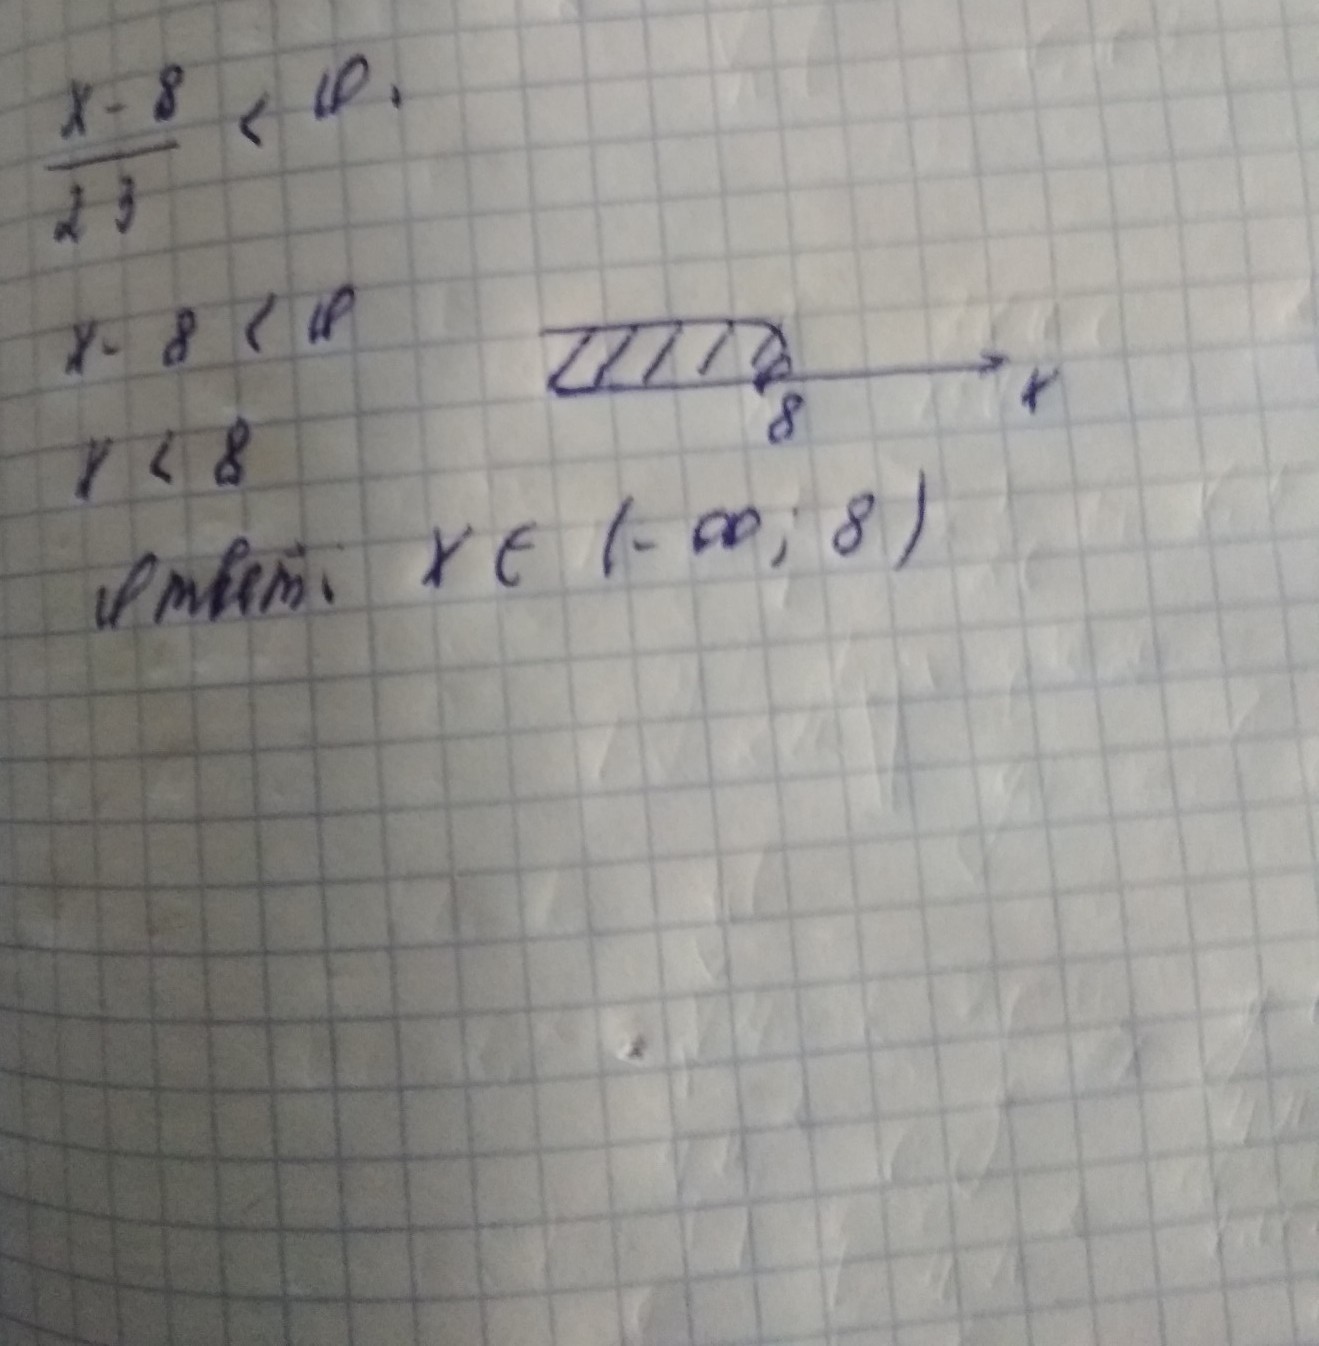 x - 8 / 23 < 0.
x - 8 < 0
x < 8
8 x
Ответ: x ∈ (- ∞; 8)